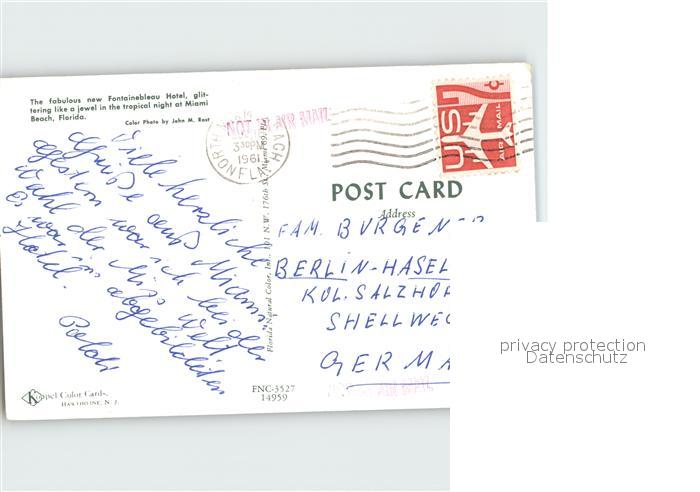 The fabulous new Fontainebleau Hotel, glit-
tering like a jewel in the tropical night at Miami
Beach, Florida.
Color Photo by John M. Rast
NOT AIR MAIL
NORTH
330PM
1961
FLA
U.S.
7c
AIR MAIL
POST CARD
Address
Viele herzliche
Grüße aus Miami,
gestern war ich bei der
Wahl der Miss Welt
war im abgebildeten
Hotel.
FAM. BURGENER
BERLIN-HASEL
KOL. SALZHOF
SHELLWEG
GERMA
Florida Natural Color, Inc., N.W. 176th St., Miami 69, Fla.
Koppel Color Cards,
HAWTHORNE, N. J.
FNC-3527
14959
privacy protection
Datenschutz